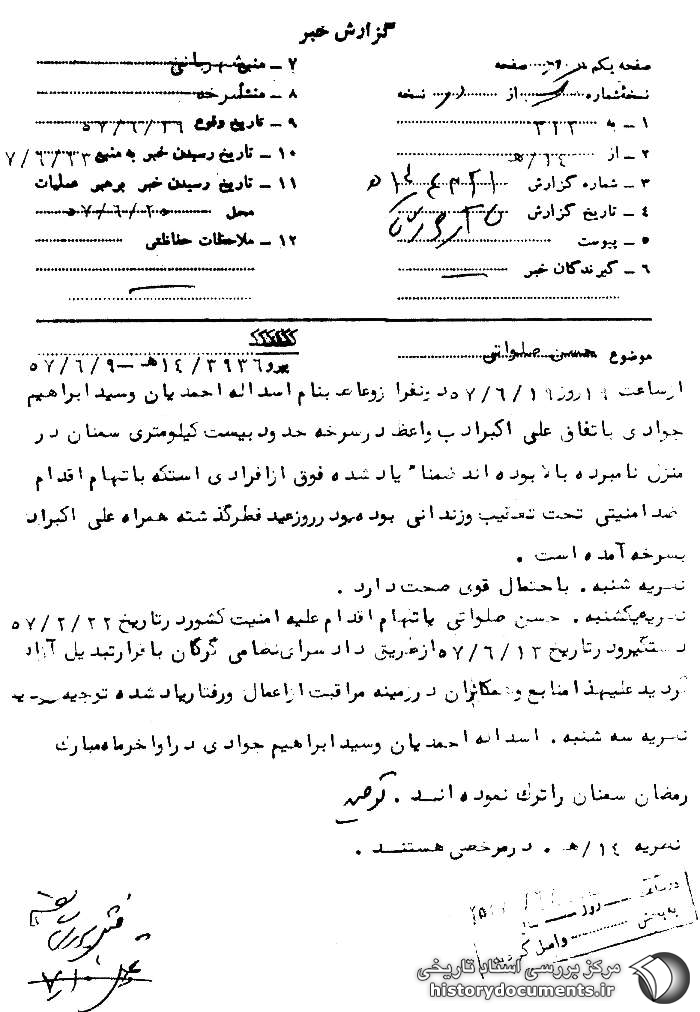 گزارش خبر
صفحه یکم از صفحه
نسخه شماره از نسخه
۱ ــ به ۳۲۳
۲ ــ از ۱۴/هـ
۳ ــ شماره گزارش
۴ ــ تاریخ گزارش
۵ ــ پیوست
۶ ــ گیرندگان خبر
۷ ــ منبع شهربانی
۸ ــ منشأ سرخه
۹ ــ تاریخ وقوع
۱۰ ــ تاریخ رسیدن خبر به منبع
۱۱ ــ تاریخ رسیدن خبر برهبر عملیات
محل ۵۷/۶/۲۰
۱۲ ــ ملاحظات حفاظتی
موضوع حسن صلواتی
پیرو ۳۹۳۶/۱۴هـ ــ ۵۷/۶/۹
ازساعت ۱۹ روز ۵۷/۶/۱۹ دونفر ازوعاظ بنام اسداله احمدیان وسید ابراهیم
جوادی باتفاق علی اکبر واعظ درسرخه حدود بیست کیلومتری سمنان در
منزل نامبرده بالا بوده اند ضمنا" یاد شده فوق ازافرادی استکه باتهام اقدام
ضد امنیتی تحت تعقیب وزندانی بوده در روزعید فطرگذشته همراه علی اکبر
بسرخه آمده است .
نظریه شنبه . باحتمال قوی صحت دارد .
نظریه یکشنبه . حسن صلواتی باتهام اقدام علیه امنیت کشور درتاریخ ۵۷/۲/۲۲
دستگیر و درتاریخ ۵۷/۶/۱۳ ازطریق دادسرای نظامی گرگان باقرار تبدیل آزاد
گردید علیهذا منابع و همکاران درزمینه مراقبت ازاعمال ورفتار یاد شده توجیه
نظریه سه شنبه . اسداله احمدیان وسید ابراهیم جوادی دراواخرماه مبارک
رمضان سمنان راترک نموده اند .
نظریه ۱۴/هـ . درمرخصی هستند .
روز
واصل گردید
مرکز بررسی اسناد تاریخی
historydocuments.ir